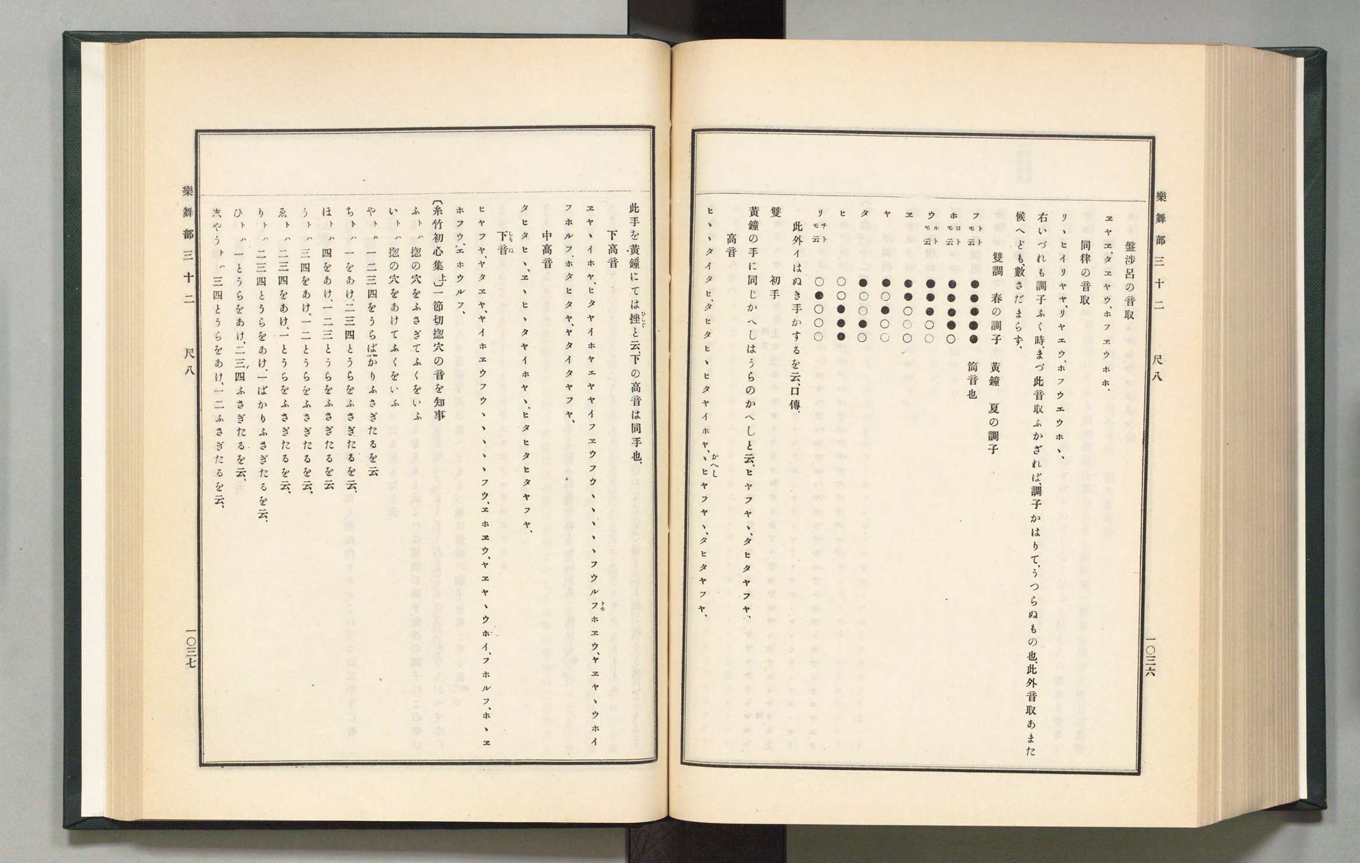 樂舞部三十二 尺八 一〇三六
盤涉呂の音取
ヱヤヱ、タヱヤウ、ホフヱウホホ、
同律の音取
リヽヒイリヤヤ、リヤエウ、ホフウエウホヽ、
右いづれも調子ふく時、まづ此音取ふかざれば、調子かはりて、うつらぬもの也、此外音取あまた
候へども、數さだまらず、
雙調 春の調子 黃鐘 夏の調子
フトトモ云 ●●●●● 筒音也
ホロトモ云 ●●●●○
ウルトモ云 ●●●○○
ヱ ●●○○○
ヤ ●○●○○
タ ●○○●○
ヒ ○○●●●
リチトモ云 ○●○○○
此外イはぬき手かするを云、口傳、
雙 初手
黃鐘の手に同じかへしはうらのかへしと云、ヒヤフヤヽ、タヒタヤフヤ、
高音
ヒヽヽタイタヒ、タヒタヒヽヒタヤイホヤ、ヽヒヤフヤヽ、タヒタヤフヤ、
かへし
此手を黃鐘にては挫と云、下の高音は同手也、
下高音
ヱヤヽイホヤ、ヒタヤイホヤエヤヤイフヱウフウヽヽヽヽヽフウルフホヱウ、ヤヱヤヽウホイ
フホルフ、ホタヒタヤ、ヤタイタヤフヤ、
中高音
タヒタヒヽ、ヱヽヒヽヒタヤイホヤヽ、ヒタヒタヒタヤフヤ、
下音
ヒヤフヤ、ヤタヱヤ、ヤイホヱウフウヽヽヽヽヽヽフウ、ヱホヱウ、ヤヱヤヽウホイ、フホルフ、ホヽヱ
ホフウ、ヱホウルフ、
〔糸竹初心集上〕一節切揔穴の音を知事
ふトハ 揔の穴をふさぎてふくをいふ
いトハ 揔の穴をあけてふくをいふ
やトハ 一二三四をうらばかりふさぎたるを云
ちトハ 一をあけ、二三四とうらをふさぎたるを云、
ほトハ 四をあけ、一二三とうらをふさぎたるを云
うトハ 三四をあけ、一二とうらをふさぎたるを云、
ゑトハ 二三四をあけ、一とうらをふさぎたるを云、
りトハ 二三四とうらをあけ、一ばかりふさぎたるを云、
ひトハ 一とうらをあけ、二三四ふさぎたるを云、
三四とうらをあけ、一二ふさぎたるを云、
樂舞部三十二 尺八 一〇三七